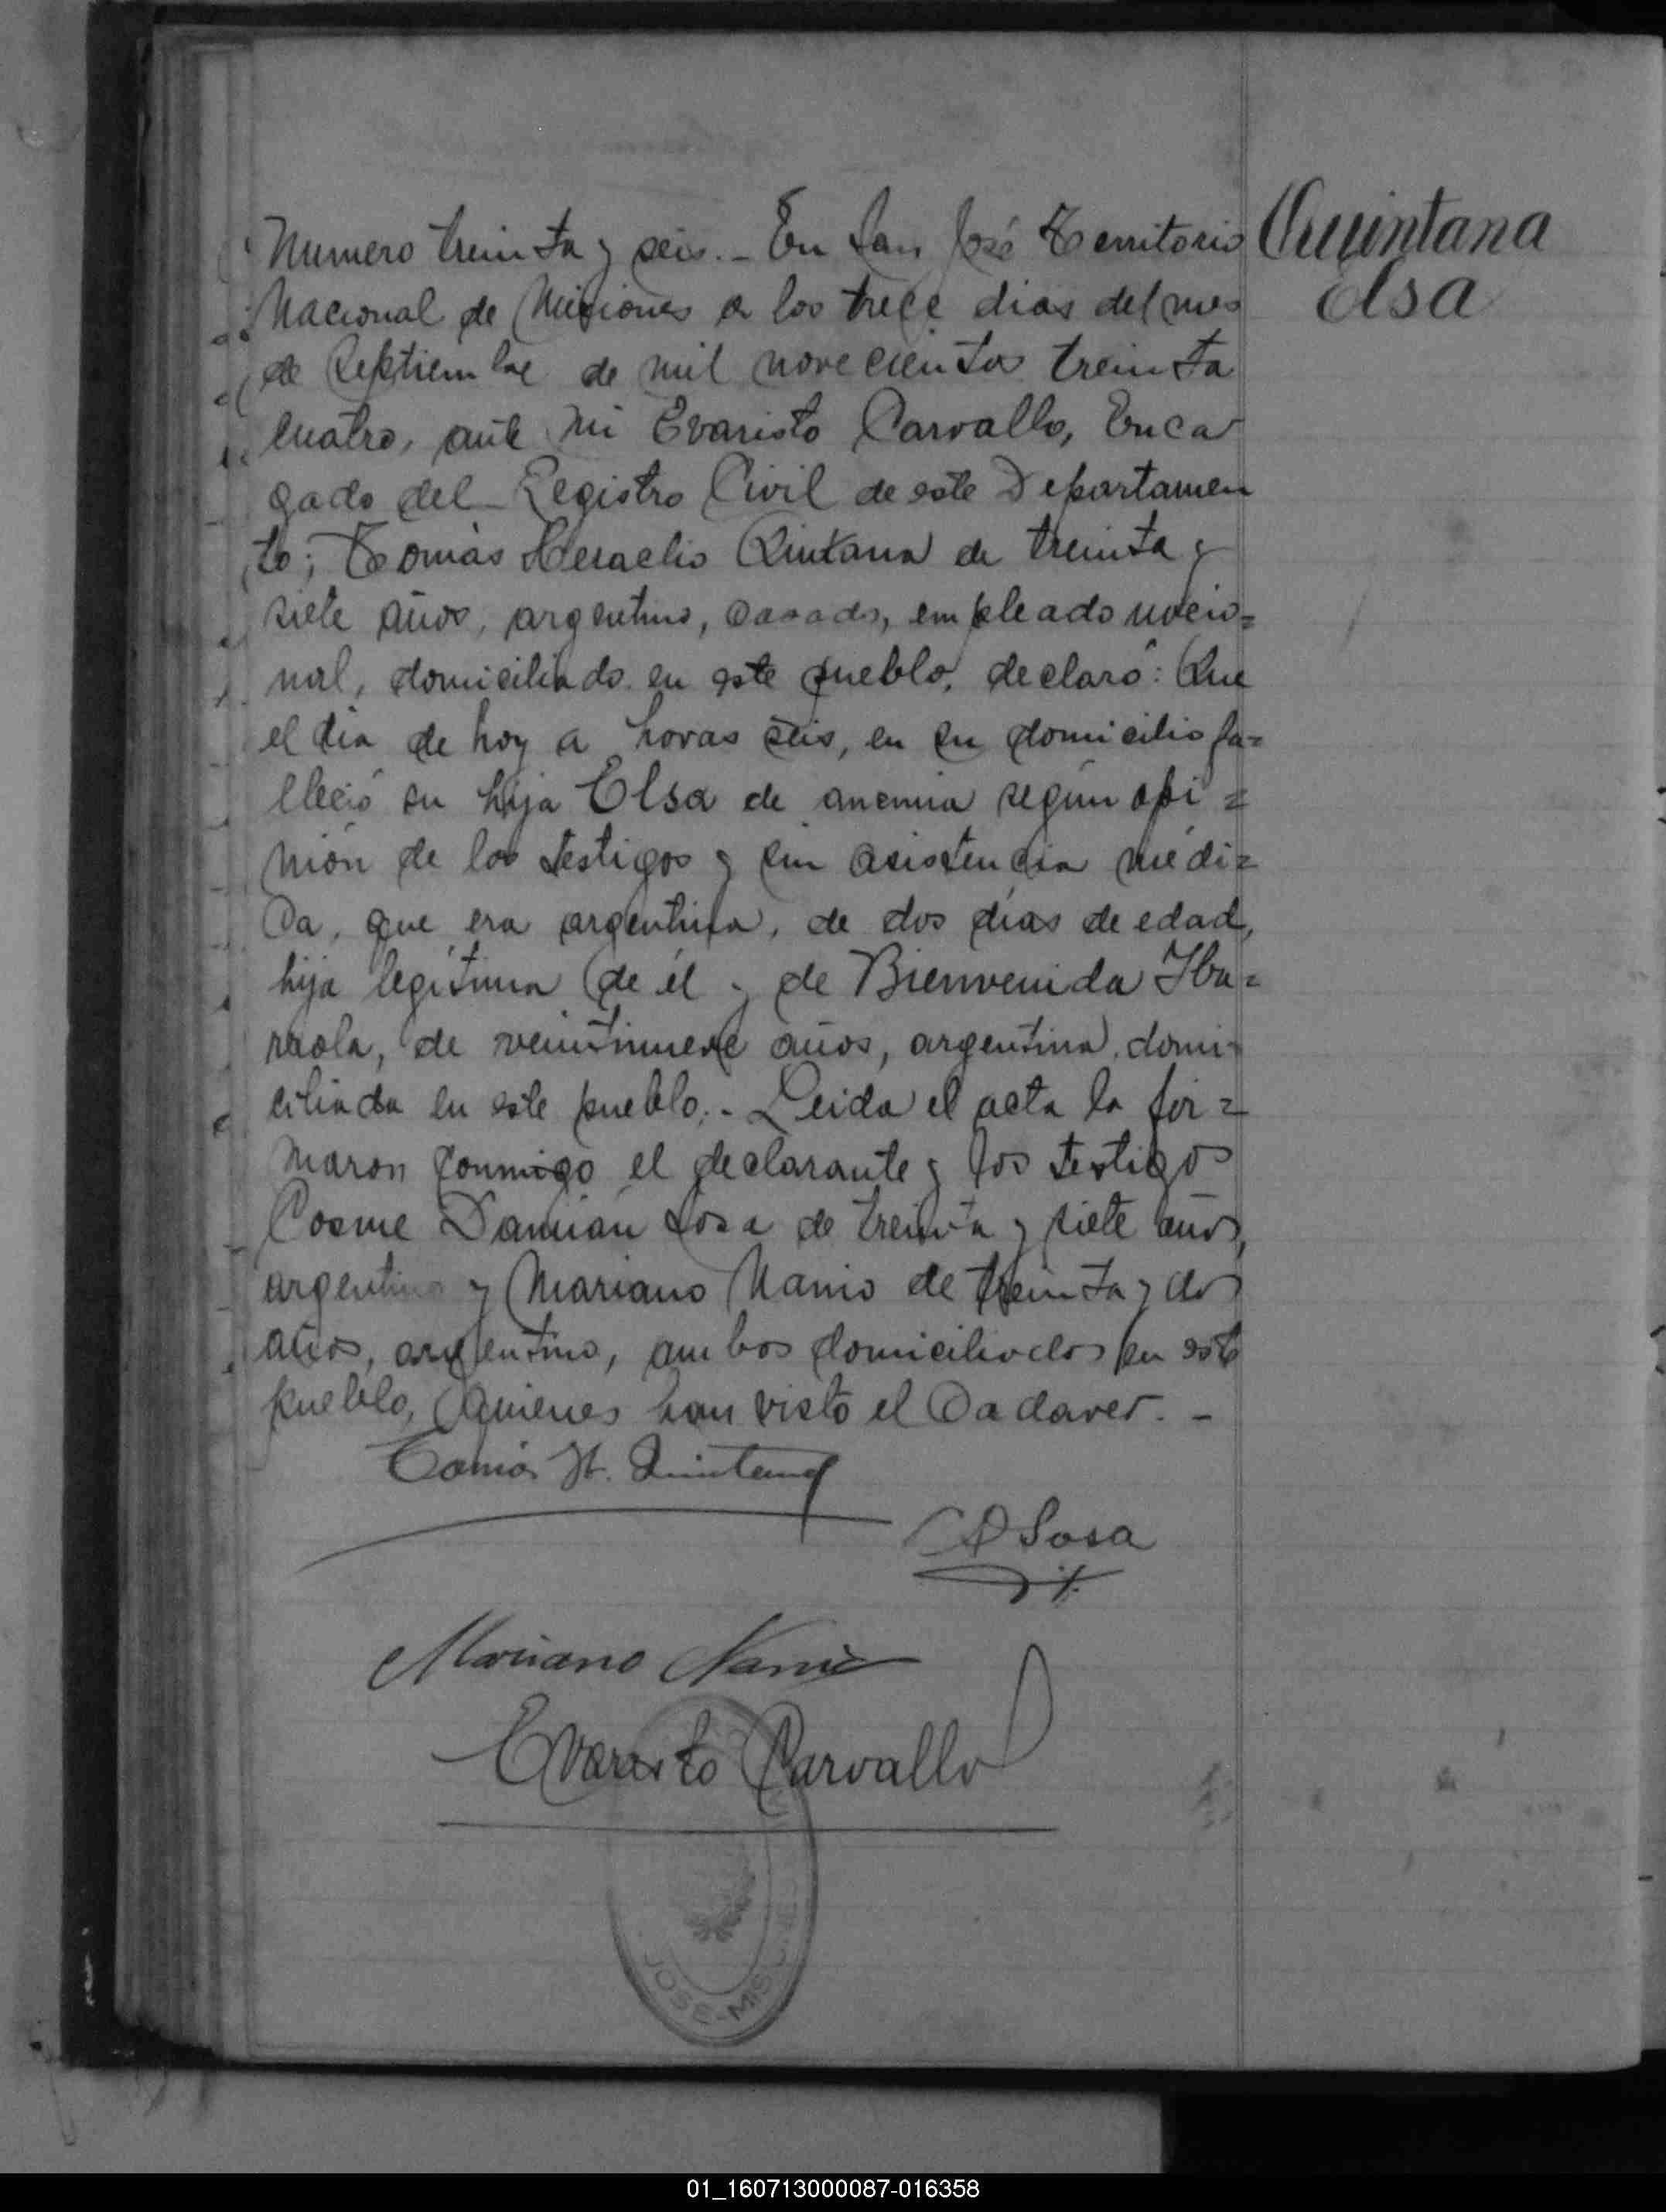 Numero treinta y seis.- En San José Territorio
Nacional de Misiones a los trece dias del mes
de Septiembre de mil novecientos treinta
cuatro, ante mi Evaristo Carvallo, Enca
gado del Registro Civil de este Departamen
to; Tomás Heraclio Quintana de treinta y
siete años, argentino, casado, empleado nacio=
nal, domiciliado en este pueblo, declaró: Que
el dia de hoy a horas seis, en su domicilio fa=
lleció su hija Elsa de anemia según opi=
nión de los testigos y sin asistencia médi=
ca, que era argentina, de dos días de edad,
hija legítima de él y de Bienvenida Iba=
rrola, de veintinueve años, argentina, domi-
ciliada en este pueblo.- Leida el acta la fir=
maron conmigo el declarante y los testigos
Cosme Damián Sosa de treinta y siete años,
argentino y Mariano Nanio de treinta y dos
años, argentino, ambos domiciliados en este
pueblo, quienes han visto el cadaver.-
Tomás H. Quintana
C D Sosa
Mariano Nanio
Evaristo Carvallo
JOSE-MIS
Quintana
Elsa
01_160713000087-016358